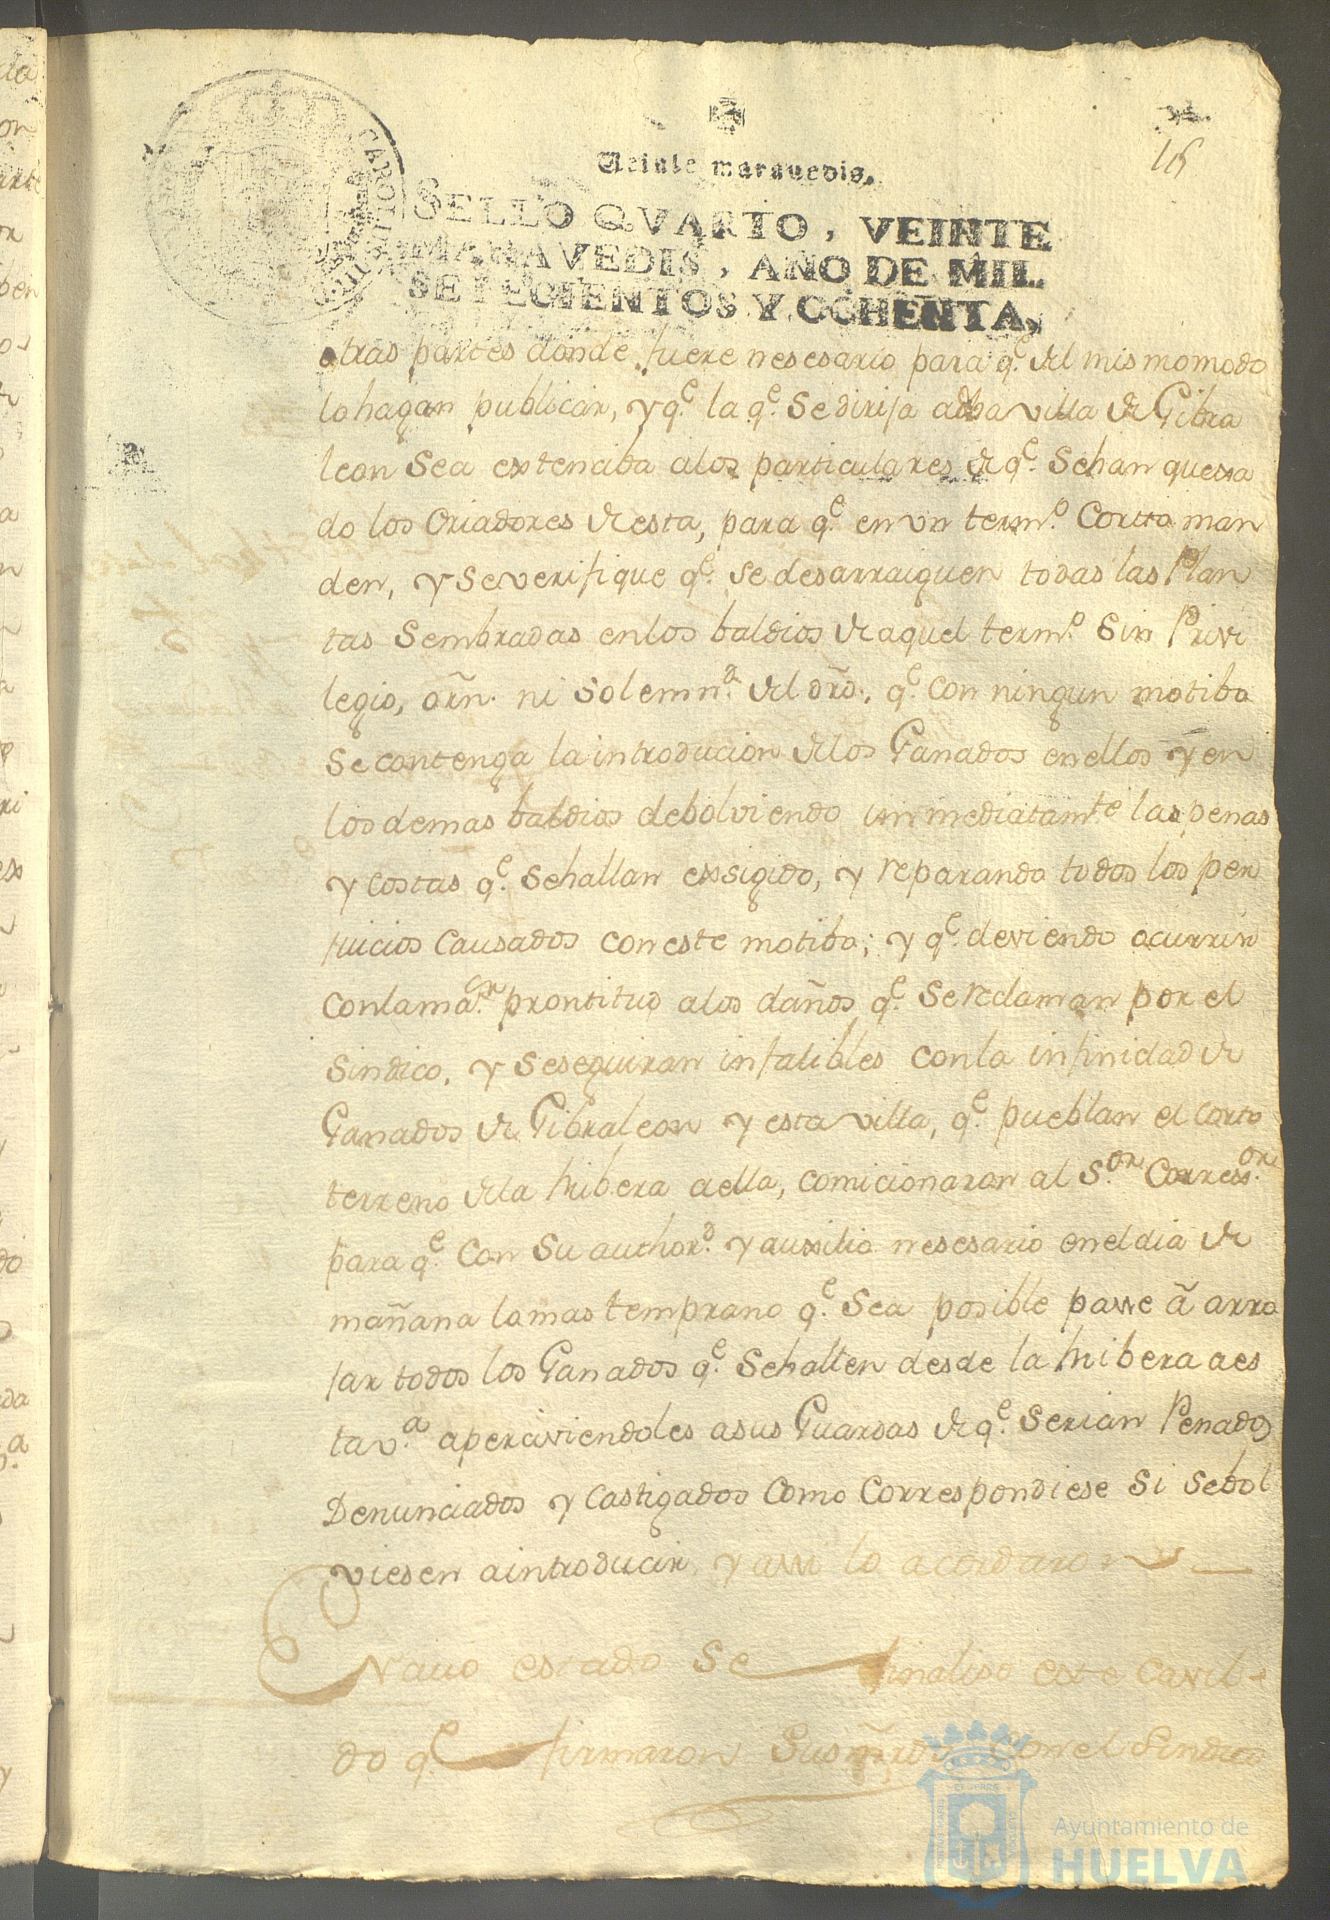 Veinte maravedis.
SELLO QVARTO, VEINTE
MARAVEDIS, AÑO DE MIL
SETECIENTOS Y OCHENTA,
otras partes donde fuere nesesario para q.e del mismo modo
lo hagan publicar, y q.e la q.e se dirija a dha villa de Gibra
leon sea extenciba a los particulares de q.e se han quexa
do los Criadores de esta, para q.e en un term.o Corto man
den, y se verifique q.e se desarraiguen todas las Plan
tas sembradas en los baldios de aquel term.o sin Privi
legio, orñ. ni solemn.d del dró., q.e con ningun motibo
se contenga la introducion de los Ganados en ellos y en
los demas baldios debolviendo inmediatam.te las penas
y costas q.e se hallan exsigido, y reparando todos los per
juicios causados con este motibo; y q.e deviendo ocurrir
con la ma.or prontitud a los daños q.e se reclaman por el
Sindico, y se seguiran infalibles con la infinidad de
Ganados de Gibraleon y esta villa, q.e pueblan el corto
terreno de la hribera a ella, comicionaron al S.or Corress.or
para q.e con su author.d y auxsilio nesesario en el dia de
mañana lo mas temprano q.e sea posible passe â arro
jar todos los Ganados q.e se hallen desde la hribera a es
ta v.a aperciviendoles a sus Guardas de q.e serian Penados
Denunciados y castigados como correspondiese si se bol
viesen a introducir, y assi lo acordaron
estado se finaliso este cavil
do q.e firmaron con el Sindico
Ayuntamiento de
HUELVA